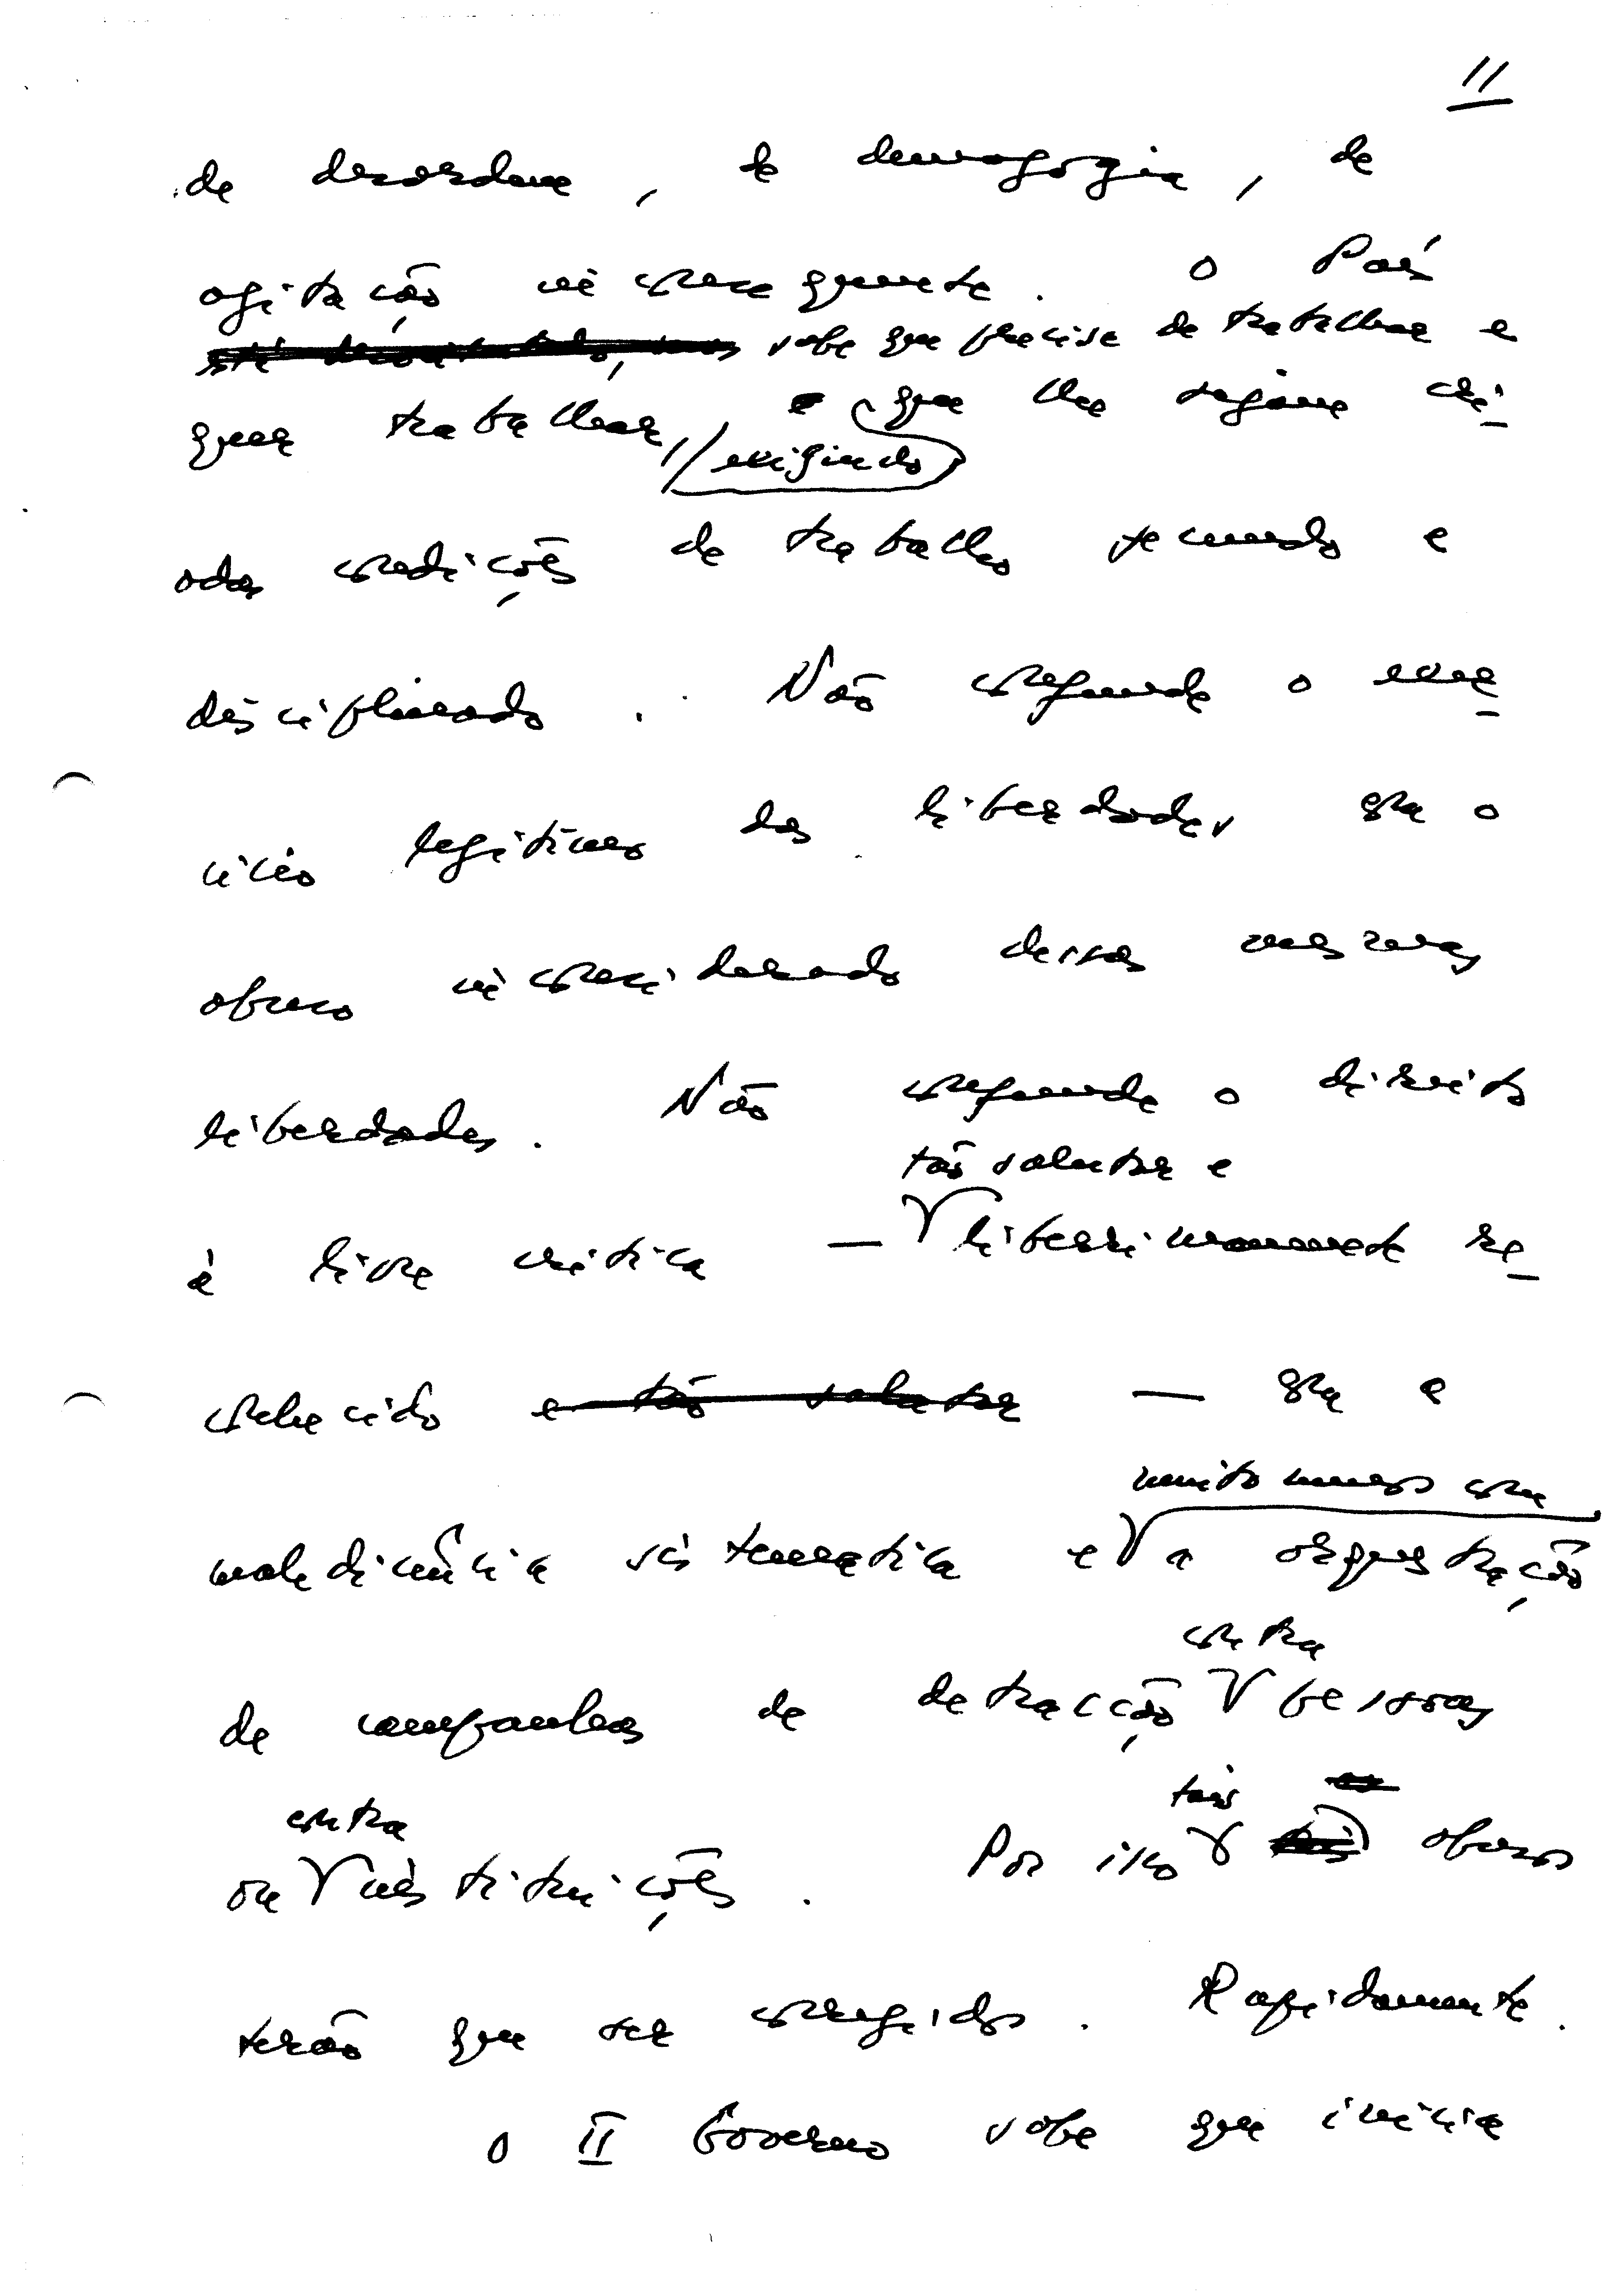 11
de desordem, de demagogia, de
agitação inconsequente. O País
sabe que precisa de trabalhar e
quer trabalhar, exigindo que lhe sejam cri-
adas condições de trabalho fecundo e
disciplinado. Não confunde o exer-
cício legítimo das liberdades com o
abuso inconsiderado dessas mesmas
liberdades. Não confunde o direito
tão salutar e
à livre crítica — libérrimamente re-
conhecido e tão salutar — com a
muito menos com
maledicência sistemática e a orquestração
contra
de campanhas de detracção pessoas
contra tais
ou instituições. Por isso abusos
terão que ser corrigidos. Rapidamente.
O II Governo sabe que inicia